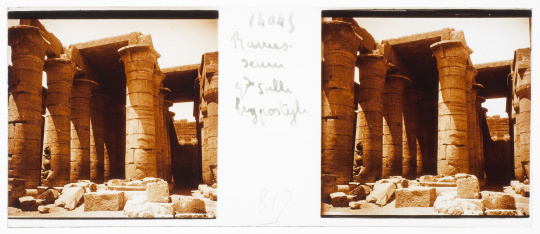 14045
Rames-
seum
gde salle
hypostyle